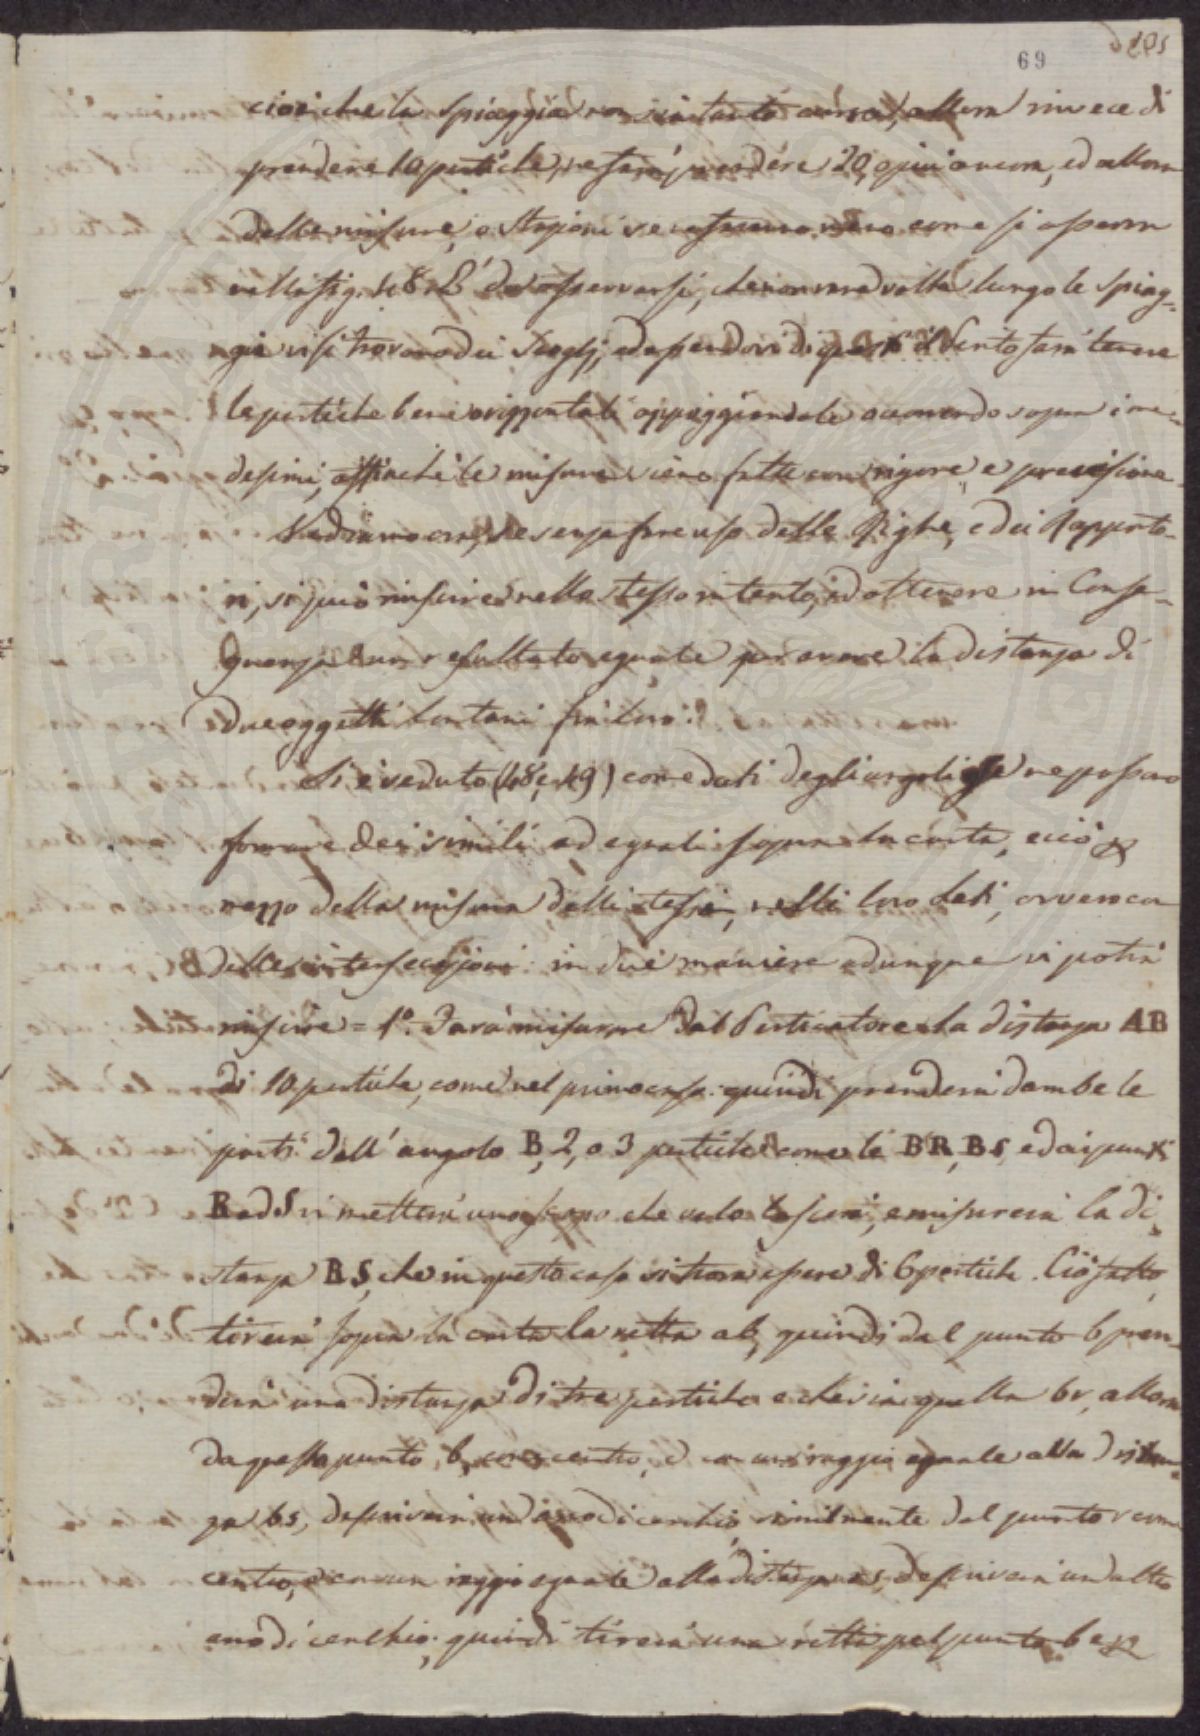 69
cioè che la Spiaggia non sia tanto curva, allora invece di
prendere 10 pertiche, ne farà prendere 20, o più ancora, ed allora
delle misure, o Stazioni se ne faranno meno come si osserva
nella fig. 118. È da osservarsi, che non rara volta lungo le Spiag-
gie vi si trovano dei Scoglj, ed essendovi di questi il Perito farà tenere
le pertiche bene orizzontali appoggiandole ancora sopra i me-
desimi, affinchè le misure siano fatte con rigore, e precisione.
Vediamo ora, se senza fare uso delle Righe, e dei Rapporto-
ri, si può riuscire nello stesso intento, ed ottenere in Conse-
guenza un resultato eguale per avere la distanza di
due oggetti lontani fra loro:
Si è veduto (48, e 49) come dati degli angoli se ne possono
formare dei simili ad eguali sopra la carta, e ciò p
mezzo della misura delli stessi, nelli loro lati, ovvero con
delle intersecazioni: in due maniere adunque si potrà
riuscire = 1°. Farà misurare dal Perticatore la distanza AB
di 10 pertiche, come nel primo caso: quindi prenderà d'ambe le
parti dell'angolo B, 2, o 3 pertiche come le BR, BS, e dai punti
R ed S vi metterà uno scopo che velo lascerà, e misurerà la di-
stanza RS, che in questo caso si trova essere di 6 pertiche. Ciò fatto,
tirerà sopra la carta la retta ab, quindi dal punto b pren-
derà una distanza di tre pertiche e che sia quella br, allora
da questo punto, b, come centro, e con un raggio eguale alla distan-
za bs, descriverà un arco di cerchio, similmente dal punto r come
centro, e con un raggio eguale alla distanza rs, descriverà un altro
arco di cerchio; quindi tirerà una retta pel punto b e p